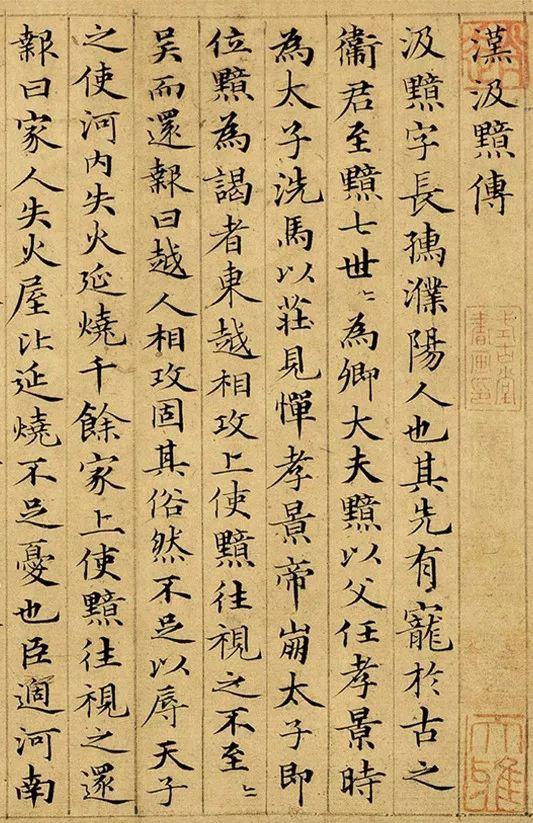 漢汲黯傳
汲黯字長孺濮陽人也其先有寵於古之
衛君至黯七世〻為卿大夫黯以父任孝景時
為太子洗馬以莊見憚孝景帝崩太子即
位黯為謁者東越相攻上使黯往視之不至〻
吴而還報曰越人相攻固其俗然不足以辱天子
之使河内失火延燒千餘家上使黯往視之還
報曰家人失火屋比延燒不足憂也臣適河南
式古堂
書畫印
大雅